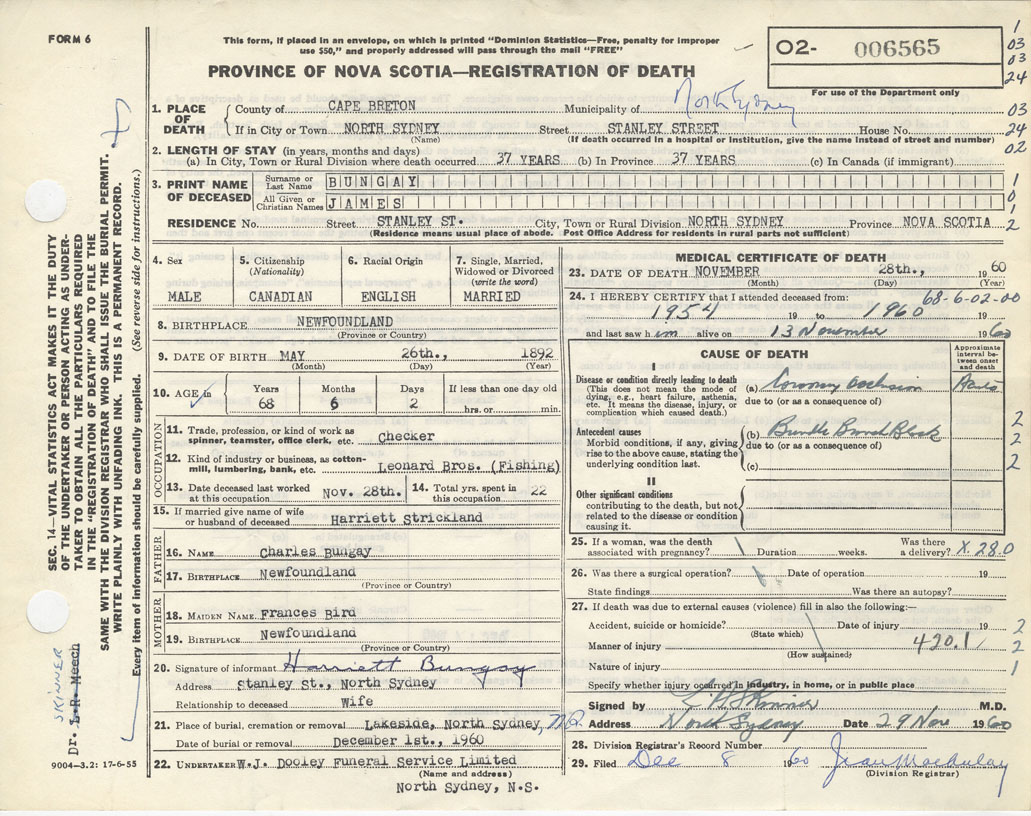 FORM 6
This form, if placed in an envelope, on which is printed "Dominion Statistics—Free, penalty for improper
use $50," and properly addressed will pass through the mail "FREE"
O2- 006565
For use of the Department only
PROVINCE OF NOVA SCOTIA—REGISTRATION OF DEATH
1
03
03
24
03
24
02
1
0
1
2
1. PLACE OF DEATH
County of CAPE BRETON Municipality of North Sydney
If in City or Town NORTH SYDNEY Street STANLEY STREET House No.
(Name) (If death occurred in a hospital or institution, give the name instead of street and number)
2. LENGTH OF STAY (in years, months and days)
(a) In City, Town or Rural Division where death occurred 37 YEARS (b) In Province 37 YEARS (c) In Canada (if immigrant)
3. PRINT NAME OF DECEASED
Surname or Last Name BUNGAY
All Given or Christian Names JAMES
RESIDENCE No. Street STANLEY ST. City, Town or Rural Division NORTH SYDNEY Province NOVA SCOTIA
(Residence means usual place of abode. Post Office Address for residents in rural parts not sufficient)
4. Sex
MALE
5. Citizenship
(Nationality)
CANADIAN
6. Racial Origin
ENGLISH
7. Single, Married,
Widowed or Divorced
(write the word)
MARRIED
8. BIRTHPLACE NEWFOUNDLAND
(Province or Country)
9. DATE OF BIRTH MAY 26th., 1892
(Month) (Day) (Year)
10. AGE
Years Months Days If less than one day old
68 6 2 hrs. or min.
OCCUPATION
11. Trade, profession or kind of work as
spinner, teamster, office clerk, etc. Checker
12. Kind of industry or business, as cotton-
mill, lumbering, bank, etc. Leonard Bros. (Fishing)
13. Date deceased last worked
at this occupation Nov. 28th.
14. Total yrs. spent in
this occupation 22
15. If married give name of wife
or husband of deceased Harriett Strickland
FATHER
16. NAME Charles Bungay
17. BIRTHPLACE Newfoundland
(Province or Country)
MOTHER
18. MAIDEN NAME Frances Bird
19. BIRTHPLACE Newfoundland
(Province or Country)
20. Signature of informant Harriett Bungay
Address Stanley St., North Sydney
Relationship to deceased Wife
21. Place of burial, cremation or removal Lakeside, North Sydney,
Date of burial or removal December 1st., 1960
22. UNDERTAKER W.J. Dooley Funeral Service Limited
(Name and address)
North Sydney, N.S.
MEDICAL CERTIFICATE OF DEATH
23. DATE OF DEATH NOVEMBER 28th., 1960
(Month) (Day) (Year)
68-6-02-00
24. I HEREBY CERTIFY that I attended deceased from:
1954 19 to 1960
and last saw him alive on 13 November 1960
CAUSE OF DEATH
Approximate
interval be-
tween onset
and death
I
Disease or condition directly leading to death
(This does not mean the mode of
dying, e.g., heart failure, asthenia,
etc. It means the disease, injury, or
complication which caused death.)
(a) Coronary Occlusion
due to (or as a consequence of)
Antecedent causes
Morbid conditions, if any, giving
rise to the above cause, stating the
underlying condition last.
(b) Bundle Branch Block
due to (or as a consequence of)
(c)
2
2
2
II
Other significant conditions
contributing to the death, but not
related to the disease or condition
causing it.
25. If a woman, was the death
associated with pregnancy? Duration weeks. Was there
a delivery? X.28.0
26. Was there a surgical operation? Date of operation 19
State findings Was there an autopsy?
27. If death was due to external causes (violence) fill in also the following:—
Accident, suicide or homicide? Date of injury 19
(State which)
Manner of injury 420.1
(How sustained)
Nature of injury
2
2
1
Specify whether injury occurred in industry, in home, or in public place
Signed by Skinner M.D.
Address North Sydney Date 29 Nov 1960
28. Division Registrar's Record Number
29. Filed Dec 8 1960 Jean Mackulay
(Division Registrar)
SEC. 14—VITAL STATISTICS ACT MAKES IT THE DUTY
OF THE UNDERTAKER OR PERSON ACTING AS UNDER-
TAKER TO OBTAIN ALL THE PARTICULARS REQUIRED
IN THE "REGISTRATION OF DEATH" AND TO FILE THE
SAME WITH THE DIVISION REGISTRAR WHO SHALL ISSUE THE BURIAL PERMIT.
WRITE PLAINLY WITH UNFADING INK. THIS IS A PERMANENT RECORD.
Every item of information should be carefully supplied. (See reverse side for instructions.)
SKINNER
Dr. Meech
9004—3.2: 17-6-55